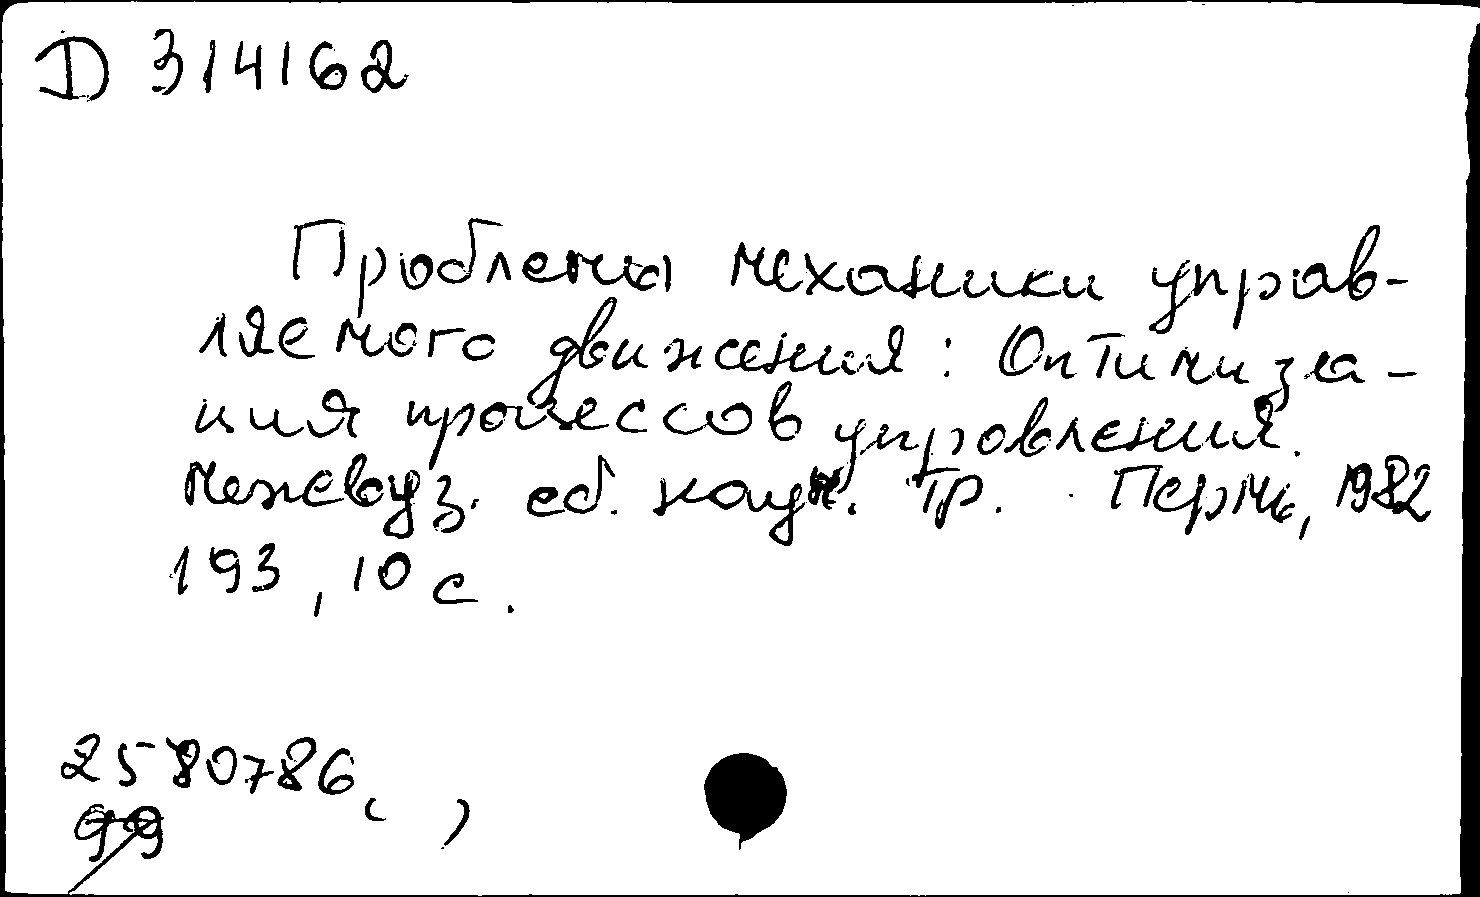 D 314162
Проблемы механики управ-
ляемого движения: Оптимиза-
ция процессов управления.
межвуз. сб. науч. тр. Пермь, 1982
193, 10 с.
2580786, ( )
99